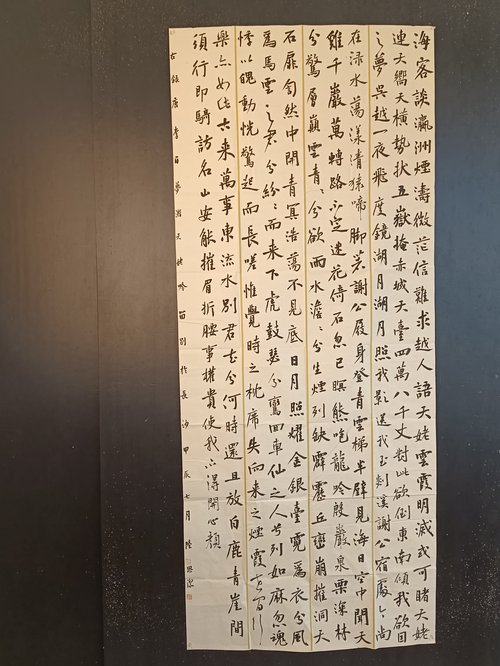 海客談瀛洲煙濤微茫信難求越人語天姥雲霞明滅或可睹天姥
連天嚮天橫勢拔五嶽掩赤城天臺四萬八千丈對此欲倒東南傾我欲因
之夢吳越一夜飛度鏡湖月湖月照我影送我至剡溪謝公宿處今尚
在淥水蕩漾清猿啼腳著謝公屐身登青雲梯半壁見海日空中聞天
雞千巖萬轉路不定迷花倚石忽已暝熊咆龍吟殷巖泉栗深林
兮驚層巔雲青青兮欲雨水澹澹兮生煙列缺霹靂丘巒崩摧洞天
石扉訇然中開青冥浩蕩不見底日月照耀金銀臺霓為衣兮風
為馬雲之君兮紛紛而來下虎鼓瑟兮鸞回車仙之人兮列如麻忽魂
悸以魄動怳驚起而長嗟惟覺時之枕席失向來之煙霞世間行
樂亦如此古來萬事東流水別君去兮何時還且放白鹿青崖間
須行即騎訪名山安能摧眉折腰事權貴使我不得開心顏
錄唐李白夢遊天姥吟留別於長沙甲辰七月陸